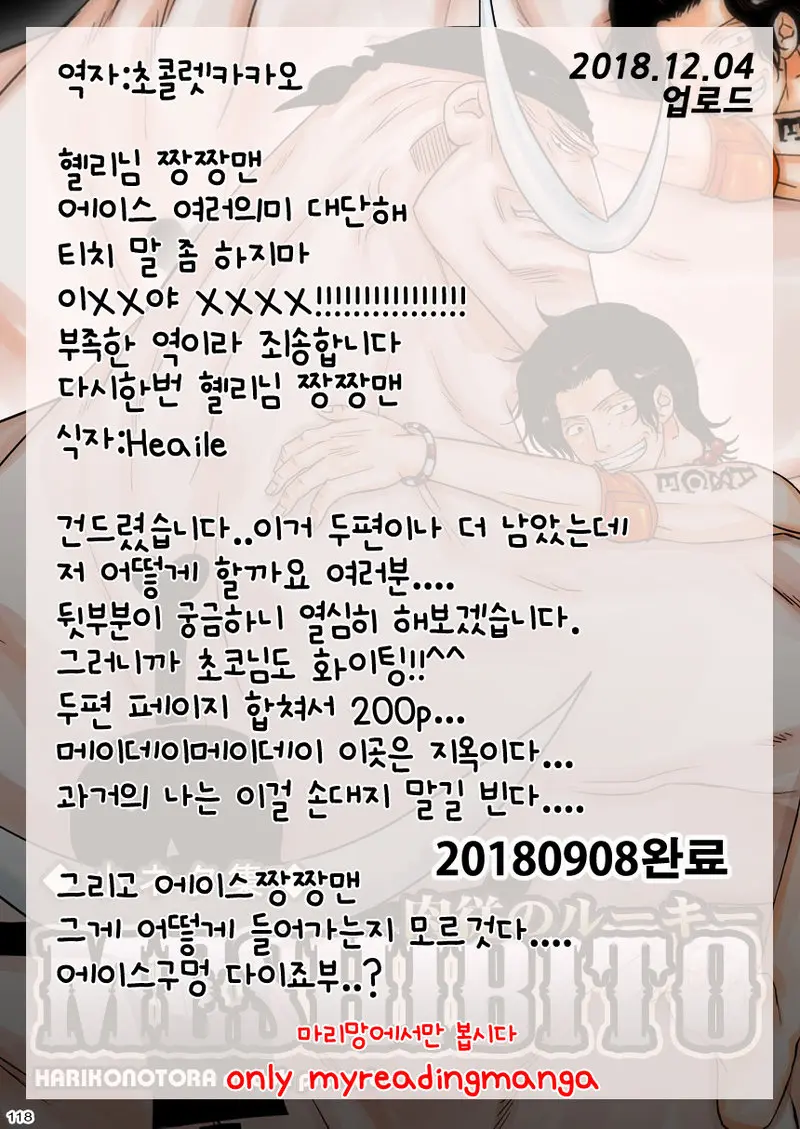 역자:초콜렛카카오
2018.12.04
업로드
혤리님 짱짱맨
에이스 여러의미 대단해
티치 말 좀 하지마
이XX야 XXXX!!!!!!!!!!!!!!!!!
부족한 역이라 죄송합니다
다시한번 혤리님 짱짱맨
식자:Heaile
건드렸습니다..이거 두편이나 더 남았는데
저 어떻게 할까요 여러분....
뒷부분이 궁금하니 열심히 해보겠습니다.
그러니까 초코님도 화이팅!!^^
두편 페이지 합쳐서 200p...
메이데이메이데이 이곳은 지옥이다...
과거의 나는 이걸 손대지 말길 빈다....
20180908완료
그리고 에이스짱짱맨
그게 어떻게 들어가는지 모르것다....
에이스구멍 다이죠부..?
のルーキー
MESHIBITO
마리망에서만 봅시다
HARIKONOTORA
only myreadingmanga
118